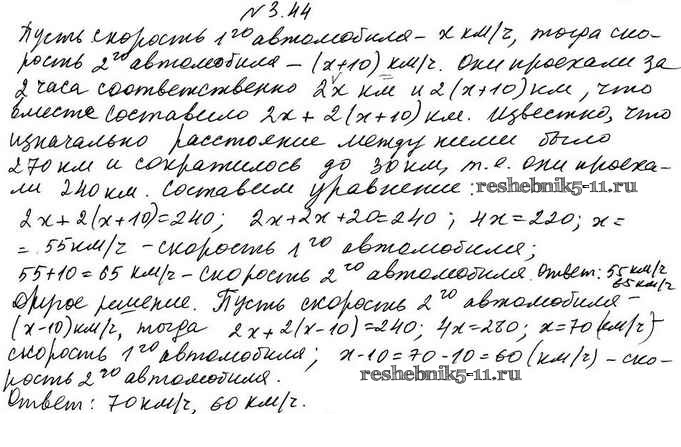 №3.44
Пусть скорость 1го автомобиля – x км/ч, тогда ско-
рость 2го автомобиля – (x+10) км/ч. Они проехали за
2 часа соответственно 2x км и 2(x+10) км, что
вместе составило 2x + 2(x+10) км. Известно, что
изначально расстояние между ними было
270 км и сократилось до 30 км, т.е. они проеха-
ли 240 км. Составим уравнение: reshebnik5-11.ru
2x+2(x+10)=240; 2x+2x+20=240; 4x=220; x=
= 55 км/ч – скорость 1го автомобиля;
55+10=65 км/ч – скорость 2го автомобиля. Ответ: 55 км/ч
65 км/ч
Другое решение. Пусть скорость 2го автомобиля –
(x-10) км/ч, тогда 2x+2(x-10)=240; 4x=280; x=70 (км/ч) –
скорость 1го автомобиля; x-10=70-10=60 (км/ч) – ско-
рость 2го автомобиля.
reshebnik5-11.ru
Ответ: 70 км/ч, 60 км/ч.